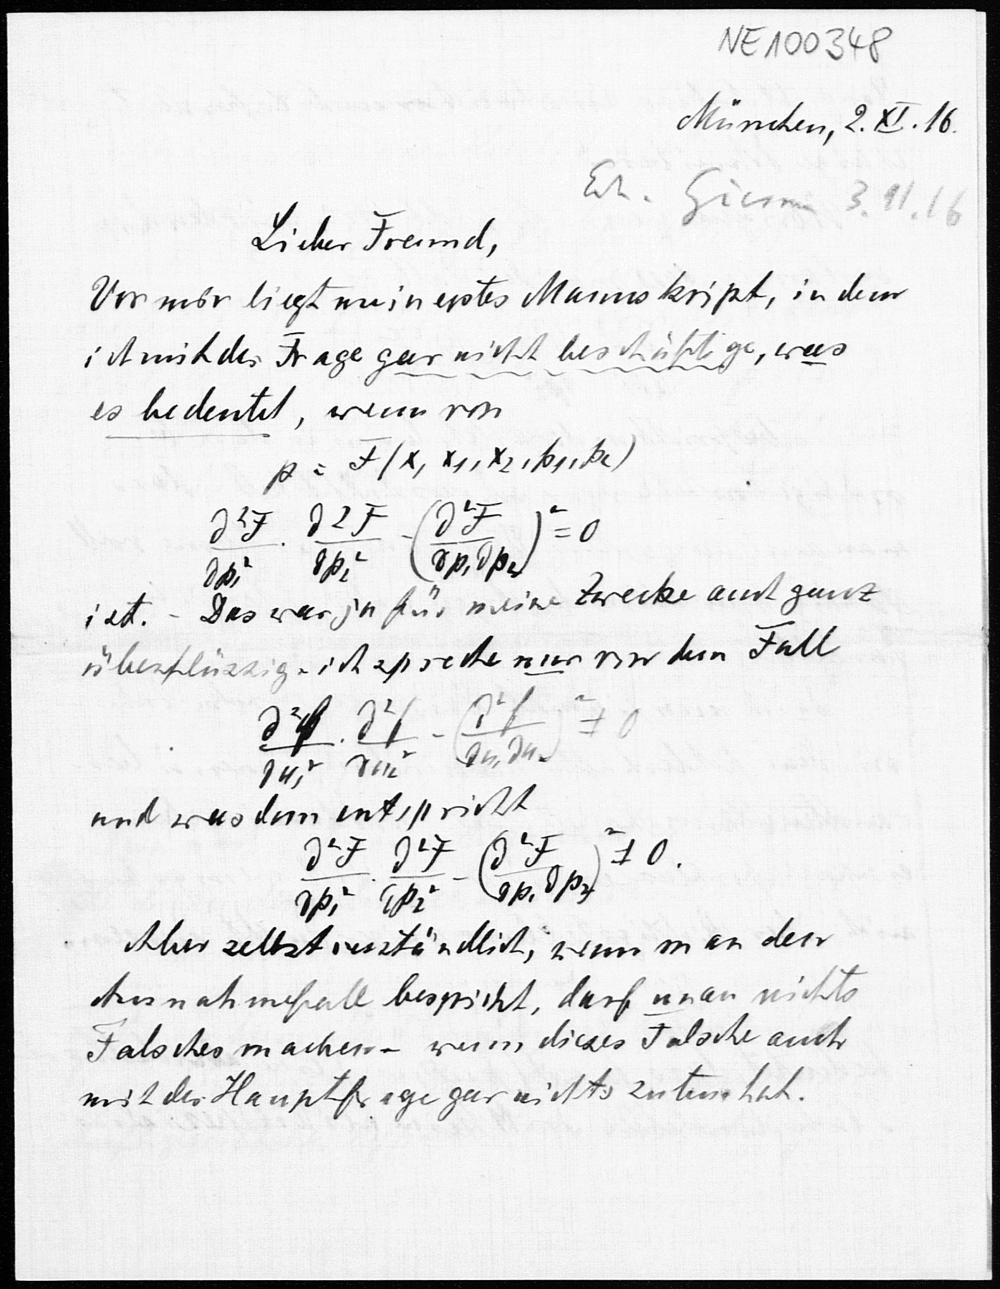 NE100348
München, 2. XI. 16.
Erh. 3.11.16
Lieber Freund,
Vor mir liegt mein erstes Manuskript, in dem
ich mit der Frage gar nicht beschäftige, was
es bedeutet, wenn von
p = F(x, x₁, x₂, p₁, p₂)
∂²F/∂p₁² · ∂²F/∂p₂² - (∂²F/∂p₁∂p₂)² = 0
ist. - Das war ja für meine Zwecke auch ganz
überflüssig - ich spreche nur von dem Fall
∂²f/∂u₁² · ∂²f/∂u₂² - (∂²f/∂u₁∂u₂)² ≠ 0
und was dem entspricht
∂²F/∂p₁² · ∂²F/∂p₂² - (∂²F/∂p₁∂p₂)² ≠ 0.
Aber selbstverständlich, wenn man den
Ausnahmefall bespricht, darf man nichts
Falsches machen - wenn dieses Falsche auch
mit der Hauptfrage gar nichts zu tun hat.